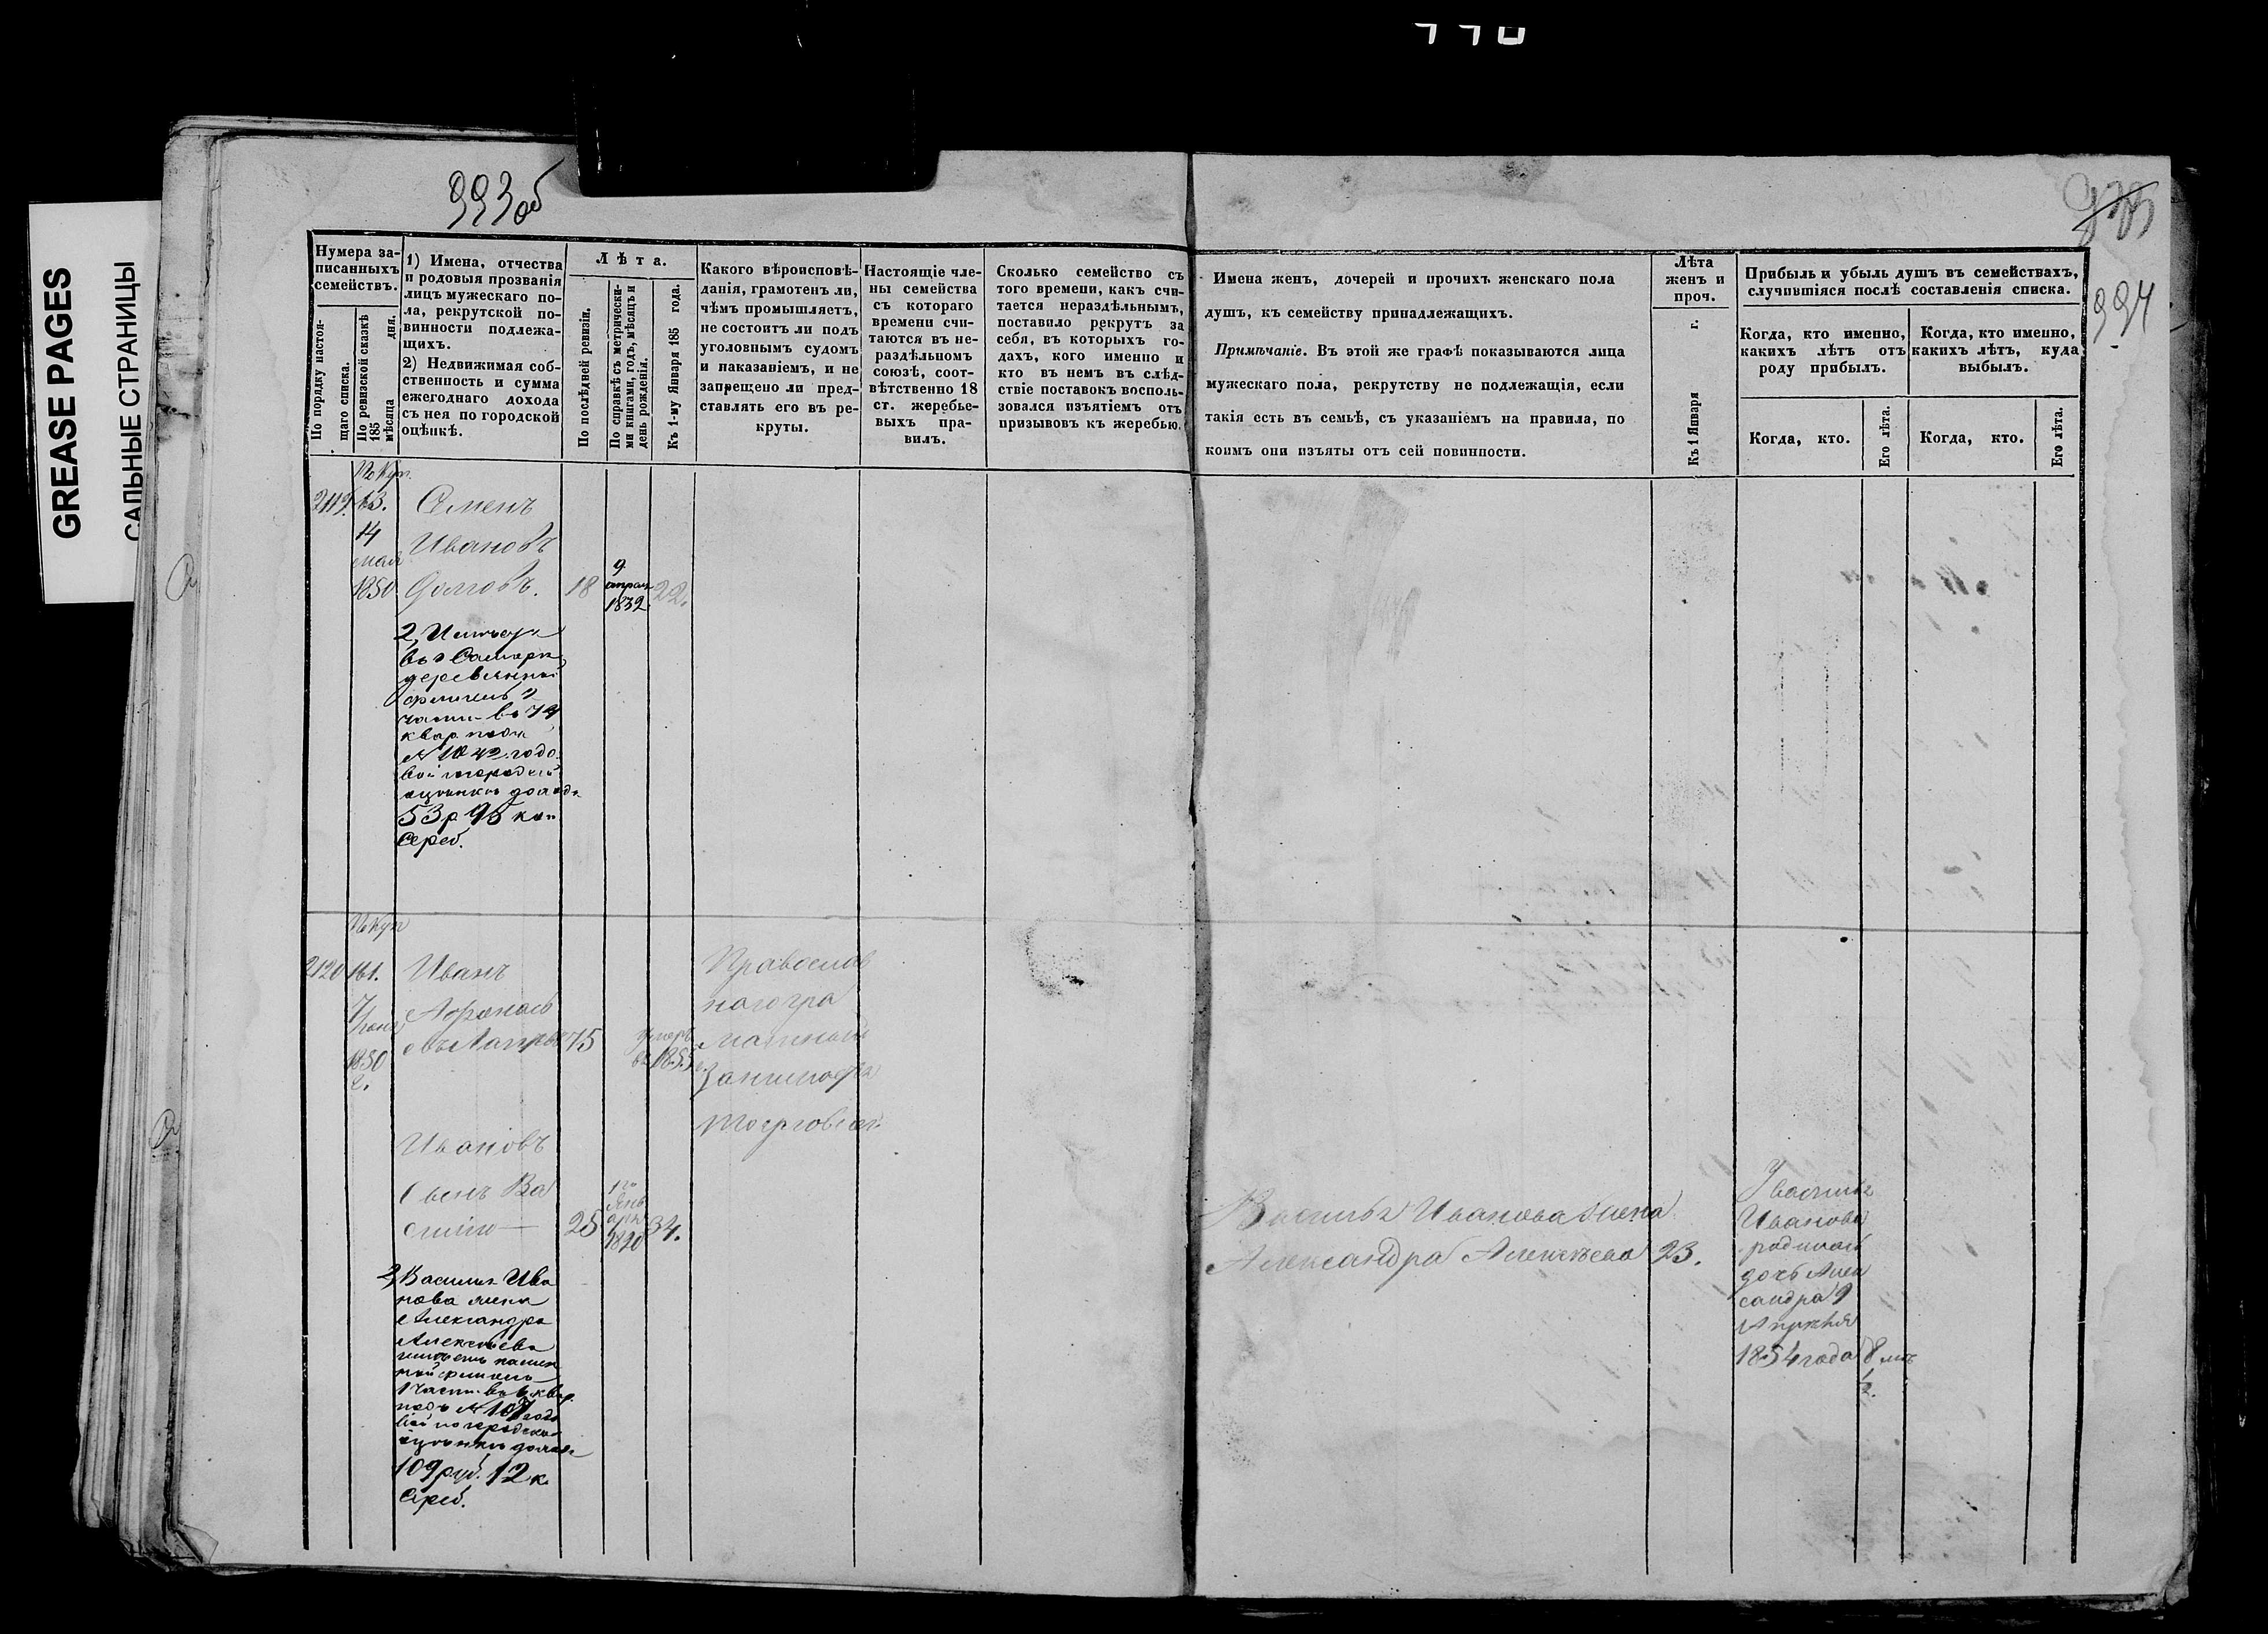 GREASE PAGES
САЛЬНЫЕ СТРАНИЦЫ
993об
994
Нумера за-
писанныхъ
семействъ.
По порядку настоя-
щаго списка.
По ревизской сказкѣ
185 мѣсяца дня.
1) Имена, отчества
и родовыя прозванія
лицъ мужескаго по-
ла, рекрутской по-
винности подлежа-
щихъ.
2) Недвижимая соб-
ственность и сумма
ежегоднаго дохода
съ нея по городской
оцѣнкѣ.
Лѣта.
По послѣдней ревизіи.
По справкѣ съ метрически-
ми книгами, годъ, мѣсяцъ и
день рожденія.
Къ 1-му Января 185 года.
Какого вѣроисповѣ-
данія, грамотенъ ли,
чѣмъ промышляетъ,
не состоитъ ли подъ
уголовнымъ судомъ
и наказаніемъ, и не
запрещено ли пред-
ставлять его въ ре-
круты.
Настоящіе чле-
ны семейства
съ котораго
времени счи-
таются въ не-
раздѣльномъ
союзѣ, соот-
вѣтственно 18
ст. жеребье-
выхъ пра-
вилъ.
Сколько семейство съ
того времени, какъ счи-
тается нераздѣльнымъ,
поставило рекрутъ за
себя, въ которыхъ го-
дахъ, кого именно и
кто въ немъ въ слѣд-
ствіе поставокъ восполь-
зовался изъятіемъ отъ
призывовъ къ жеребью.
Имена женъ, дочерей и прочихъ женскаго пола
душъ, къ семейству принадлежащихъ.
Примѣчаніе. Въ этой же графѣ показываются лица
мужескаго пола, рекрутству не подлежащія, если
такія есть въ семьѣ, съ указаніемъ на правила, по
коимъ они изъяты отъ сей повинности.
Лѣта
женъ и
проч.
Къ 1 Января г.
Прибыль и убыль душъ въ семействахъ,
случившіяся послѣ составленія списка.
Когда, кто именно,
какихъ лѣтъ отъ
роду прибылъ.
Когда, кто именно,
какихъ лѣтъ, куда
выбылъ.
Когда, кто.
Его лѣта.
Когда, кто.
Его лѣта.
По Куп.
2119.
14
мая
1850
Семенъ
Ивановъ
Долговъ. 18
9
апрѣля
1832
22.
2, Имѣетъ
въ г Самарѣ
деревянный
флигель 2
части въ 74
квар. подъ
№ 1042. годо
вой городской
оцѣнкѣ дохода
53 р 95 коп
Сереб.
По Куп
2120 161.
1850
г.
Иванъ
Афанась
евъ 75
умеръ
въ 1855 г.
Православ
наго гра
матный
занимается
торговлей.
Ивановъ
сынъ Ва
силій 25
1го
Янв
аря
1820
34.
2, Василія Ива
нова жена
Александра
Алексѣева
имѣетъ камен
ный флигель
1 части въ 6 квар
подъ № 107 годо
вой по городской
оцѣнкѣ дохода
109 руб. 12 к
Среб.
Василья Иванова жена
Александра Алексѣева 23.
У Василья
Иванова
родилась
дочь Алек
сандра 9
Апрѣля
1854 года
8 мѣ
1/2.